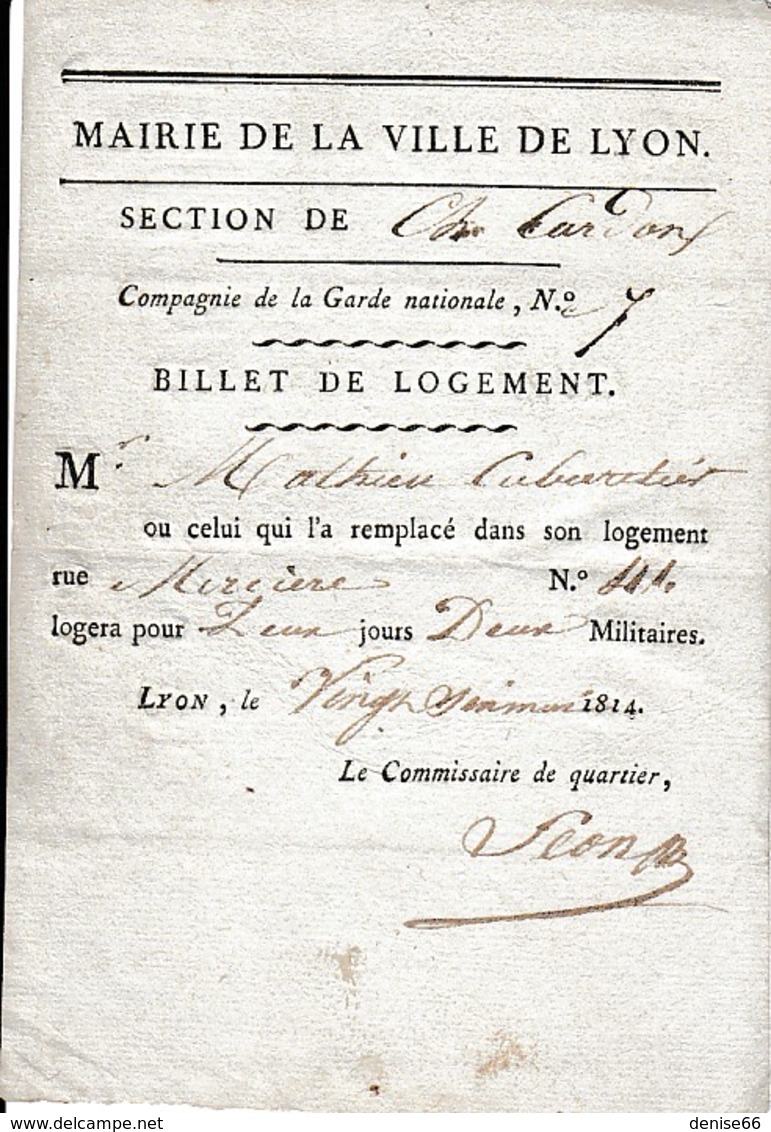 MAIRIE DE LA VILLE DE LYON.
SECTION DE
Compagnie de la Garde nationale, N.º 7
BILLET DE LOGEMENT.
Mr. Mathieu Cabaretier
ou celui qui l'a remplacé dans son logement
rue Mercière N.º
logera pour Deux jours Deux Militaires.
LYON, le Vingt 1814.
Le Commissaire de quartier,
denise66